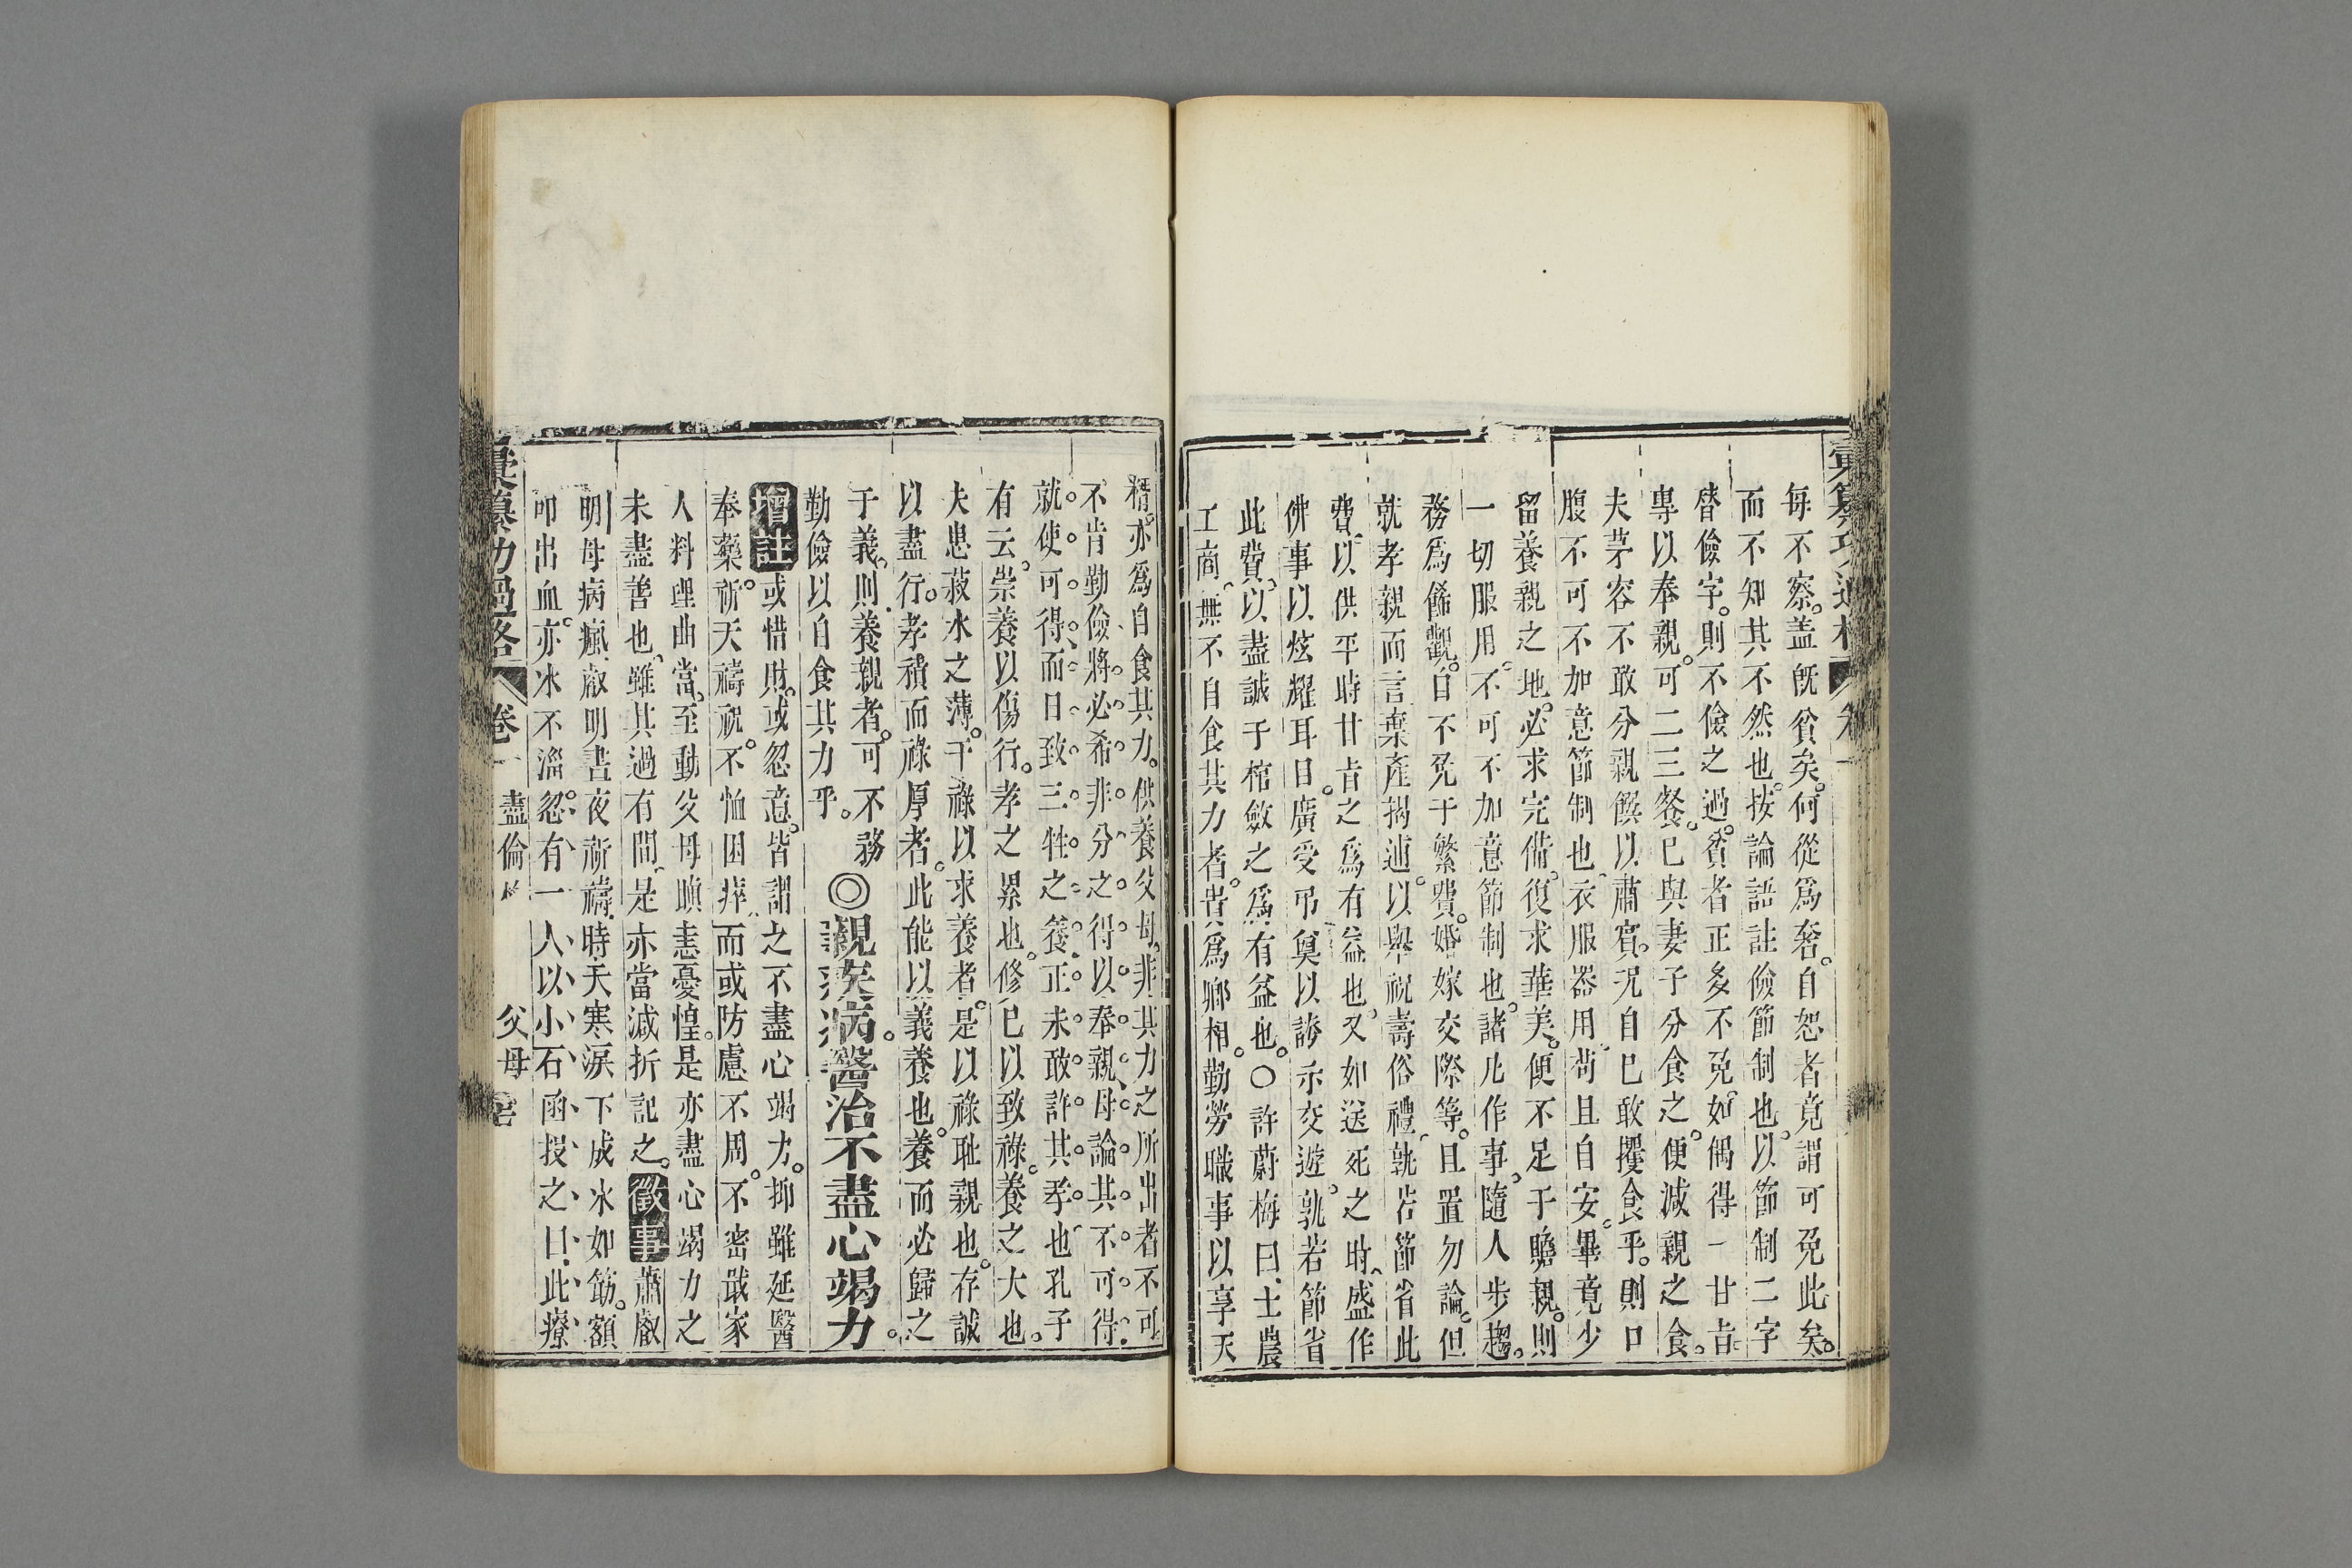 彙纂功過格 卷一
每不察。盖既貧矣。何從爲奢。自恕者竟謂可免此矣。
而不知其不然也。按論語註儉節制也。以節制二字
替儉字。則不儉之過。貧者正多不免。如偶得一甘旨
專以奉親。可二三餐。已與妻子分食之。便減親之食。
夫茅容不敢分親饌以肅賓。况自己敢攫食乎。則口
腹不可不加意節制也。衣服器用。苟且自安。畢竟少
留養親之地。必求完備。復求華美。便不足于贍親。則
一切服用。不可不加意節制也。諸凡作事。隨人步趨。
務爲餙觀。自不免于繁費。婚嫁交際等。且置勿論。但
就孝親而言。棄產揭逋。以舉祝壽俗禮。孰若節省此
費。以供平時甘旨之爲有益也。又如送死之時。盛作
佛事以炫耀耳目。廣受吊奠以誇示交遊。孰若節省
此費。以盡誠于棺斂之爲有益也。○許蔚梅曰。士農
工商。無不自食其力者。皆爲鄉相。勤勞職事以享天
糈。亦爲自食其力。供養父母。非其力之所出者不可
不肯勤儉。將必希非分之得以奉親。毋論其不可得。
就使可得。而日致三牲之養。正未敢許其孝也。孔子
有云。崇養以傷行。孝之累也。修己以致祿。養之大也。
夫患菽水之薄。干祿以求養者。是以祿耻親也。存誠
以盡行。孝積而祿厚者。此能以義養也。養而必歸之
于義。則養親者。可不務
勤儉以自食其力乎。
◎親疾病。醫治不盡心竭力。
增註 或惜財。或忽意。皆謂之不盡心竭力。抑雖延醫
奉藥。祈天禱祝。不恤困瘁。而或防慮不周。不密戢家
人料理曲當。至動父母瞋恚憂惶。是亦盡心竭力之
未盡善也。雖其過有間。是亦當減折記之。徵事 蕭叡
明母病瘋。叡明晝夜祈禱。時天寒。淚下成冰如筯。額
叩出血。亦冰不溜。忽有一人以小石函授之曰。此療
彙纂功過格 卷一 盡倫 父母